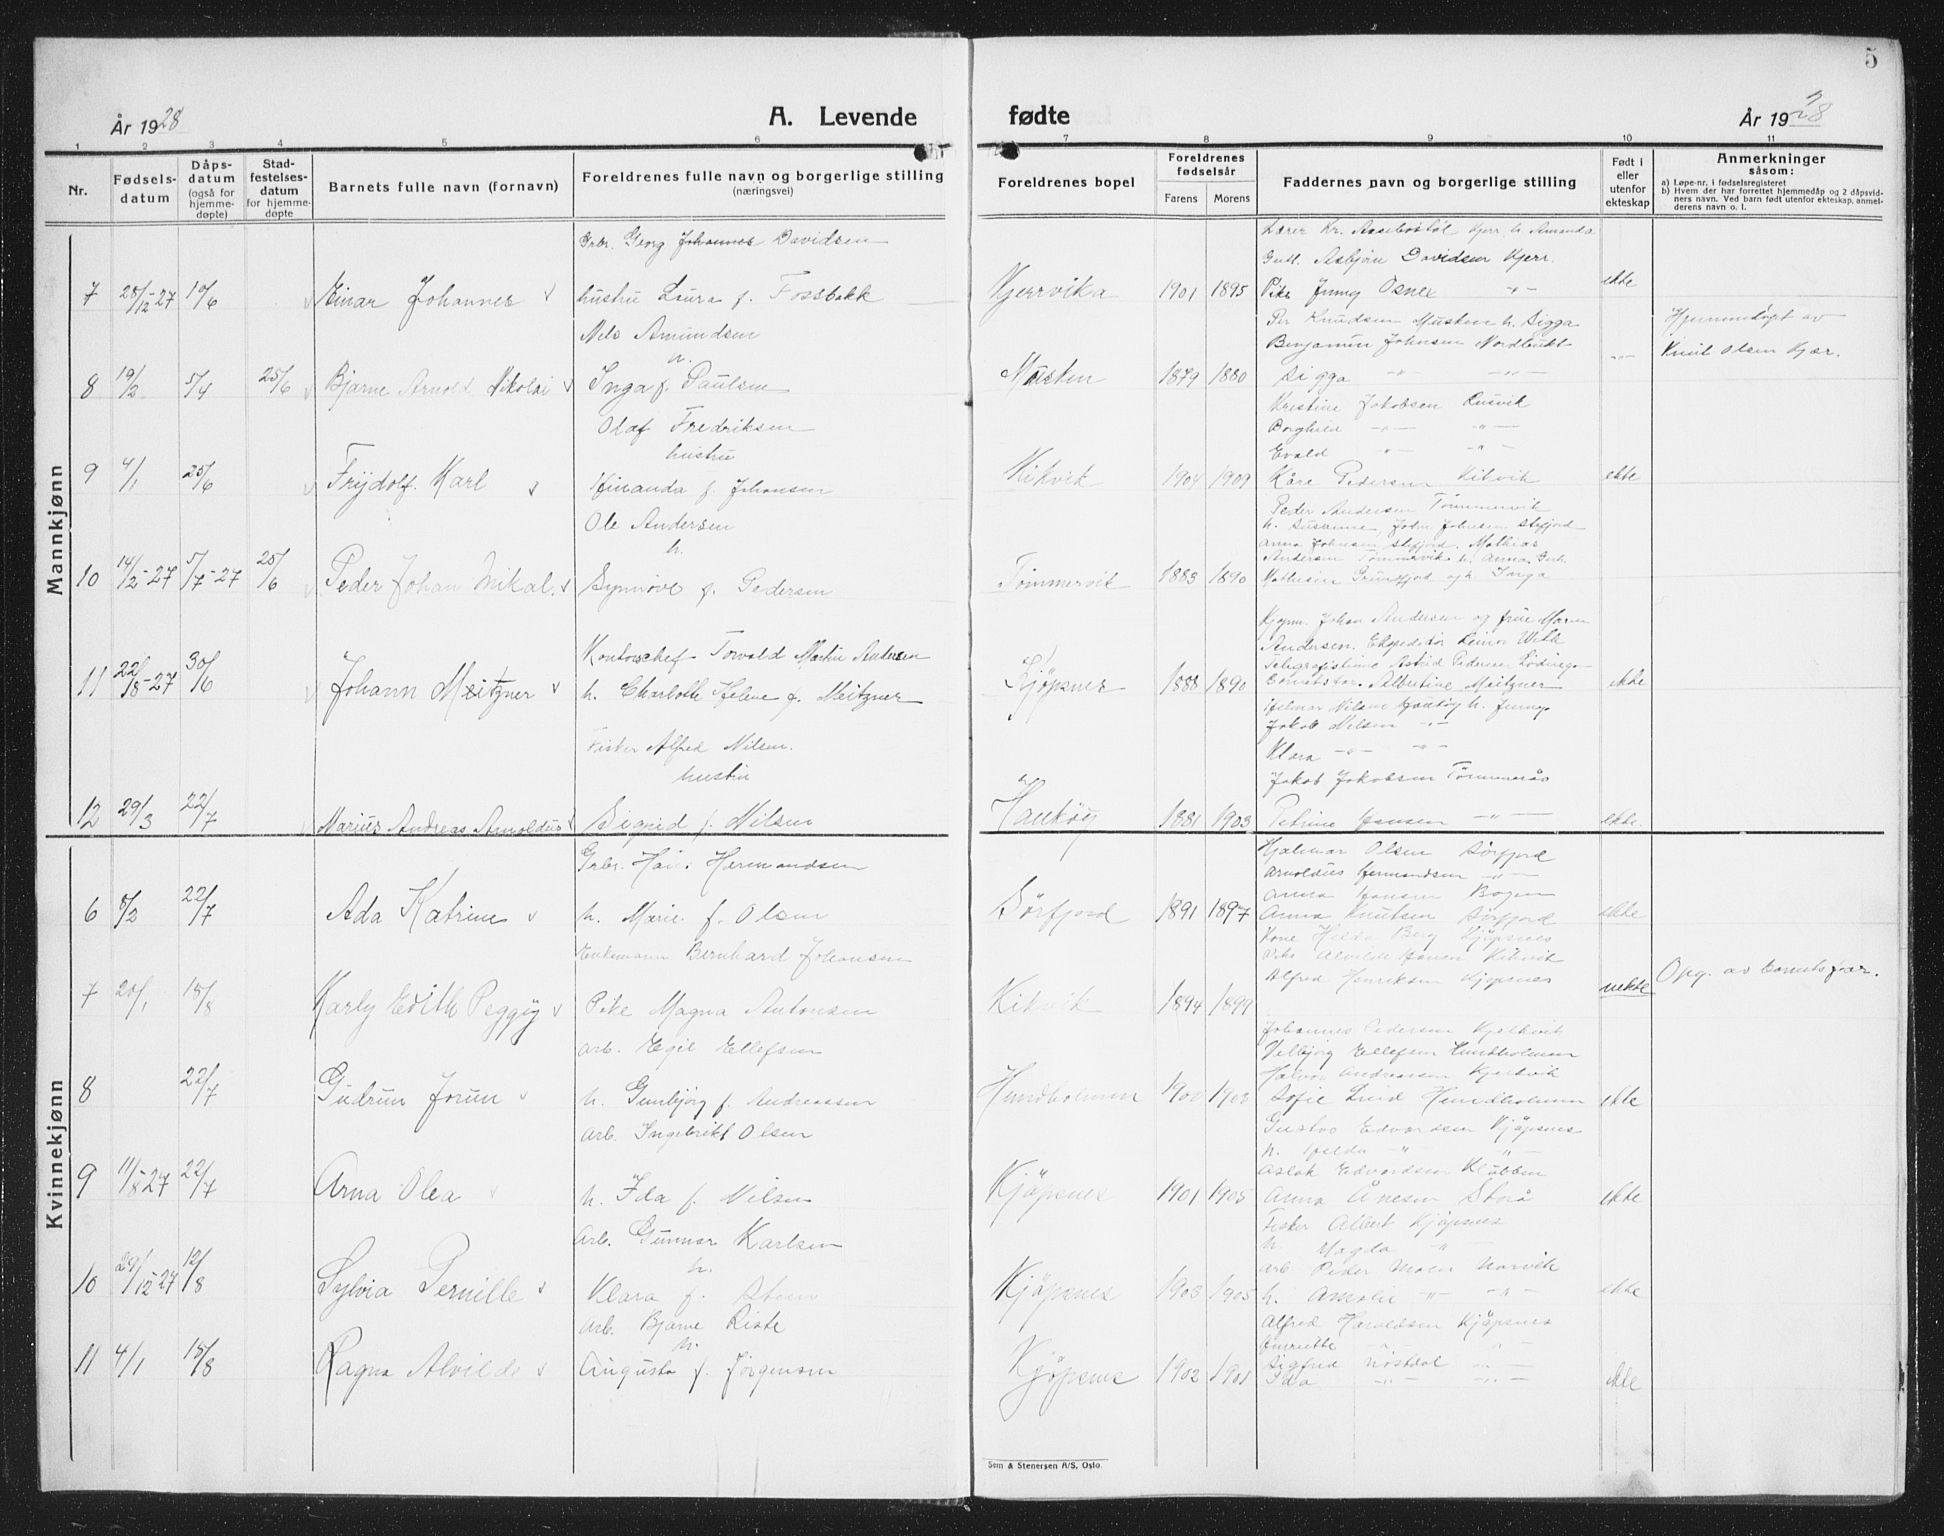 5
År 1928
A. Levende fødte
År 1928
1 2 3 4 5 6 7 8 9 10 11
Nr.
Fødselsdatum
Dåpsdatum (også for hjemmedøpte)
Stadfestelsesdatum for hjemmedøpte
Barnets fulle navn (fornavn)
Foreldrenes fulle navn og borgerlige stilling (næringsvei)
Foreldrenes bopel
Foreldrenes fødselsår
Farens Morens
Faddernes navn og borgerlige stilling
Født i eller utenfor ekteskap
Anmerkninger såsom:
a) Løpe-nr. i fødselsregisteret
b) Hvem der har forrettet hjemmedåp og 2 dåpsvidners navn. Ved barn født utenfor ekteskap, anmelderens navn o. l.
Mannkjønn
Grbr. Georg Johannes Davidsen
Lærer Kr. Kjerr. h. Amanda
Gutt. Asbjørn Davidsen Kjerr.
7 28/12-27 10/6 Einar Johannes hustru Laura f. Fossbakk Kjerrvika 1901 1895 Pike Jenny Osnes -"- ekte
Nils Amundsen
Per Knudsen Musten h. Sigga
Hjemmedøpt av
h.
Benjamin Johnsen Nordbukt
Knut Olsen Kjær.
8 19/2 5/4 25/6 Bjarne Arnold Nikolai Inga f. Paulsen Musten 1879 1880 Sigga -"- -"- -"-
Olaf Fredriksen
Kristine Jakobsen Rusvik
hustru
Borghild -"- -"-
Evald -"- -"-
9 4/1 25/6 Frydolf Karl Hinanda f. Johansen Kikvik 1904 1909 Kåre Pedersen Kikvik ekte
Ole Andersen
Peder Andersen Tømmervik
h.
h. Susanne, John Johnsen Stefjord
Anna Johnsen Stefjord. Mathias
Andersen Tømmervik h. Anna.
10 14/2-27 5/7-27 25/6 Peder Johan Mikal. Synnöve f. Pedersen Tömmervik 1883 1890 Mathisen Grundfjord og h. Inga
Kjøpm. Johan Andersen og frue Maren
Kontorchef Torvald Martin Andersen
Andersen. Ekspeditør Einar Wilk
Telegrafistinne Astrid Pedersen Lødinge-
11 22/8-27 30/6 Johann Meitzner h. Charlotte Helene f. Meitzner Kjöpsnes 1888 1890 Albertine Meitzner ekte
Hilmar Nilsen h. Jenny
Fisker Alfred Nilsen.
Jakob Nilsen -"-
hustru
Klara -"- -"-
Jakob Jakobsen Tömmerås
12 29/3 22/7 Marius Andreas Arnoldus Sigrid f. Nilsen Hauköy 1881 1903 Petrine Hansen -"- ekte.
Kvinnekjønn
Grbr. Hans Hermandsen
Hjalmar Olsen Sörfjord
Arnoldus Hermandsen -"-
Anna Hansen Bogen
6 8/2 22/7 Ada Katrine h. Marie f. Olsen Sörfjord 1891 1897 Anna Knutsen Sörfjord ekte
Enkemann Bernhard Johansen
Kone Hilda Berg Kjöpsnes
Pike Alvilde Hansen Kikvik
Alfred Henriksen Kjöpsnes
7 20/1 18/8 Karly Edith Peggy Pike Magna Antonsen Kikvik 1894 1899 uekte Opg. av barnets far.
Arb. Egil Ellefsen
Johannes Pedersen Kjelkvik
Velbjörg Ellefsen Hundholmen
Halvor Andreassen Kjelkvik
8 22/7 Gudrun Jorun h. Gunbjörg f. Andreassen Hundholmen 1900 1903 Sofie Lind Hundholmen ekte
Arb. Ingebrikt Olsen
Gustav Edvardsen Kjöpsnes
h. Hilda -"- "
Aslak Edvardsen Klubben
9 11/8-27 22/7 Arna Olea h. Ida f. Nilsen Kjöpsnes 1901 1905 Anna Ånesen Storå ekte
Arb. Gunnar Karlsen
Fisker Albert Kjöpsnes
h. Magda "
h.
Arb Peder Moen Narvik
10 29/12-27 12/8 Sylvia Pernille Klara f. Steen Kjöpsnes 1903 1905 h. Amalie -"- -"- ekte
Arb. Bjarne Riste
Alfred Haraldsen Kjöpsnes
h.
Henriette -"- "
Sigfrid Nöstdal -"-
11 4/1 18/8 Ragna Alvilde Augusta f. Jörgensen Kjöpsnes 1902 1901 Ida -"- -"- ekte
Sem & Stenersen A/S, Oslo.